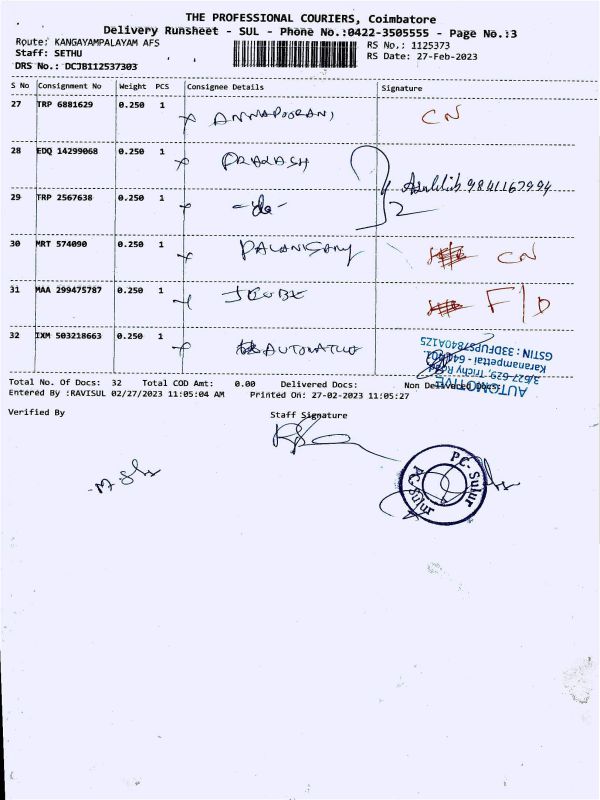 THE PROFESSIONAL COURIERS, Coimbatore
Delivery Runsheet - SUL - Phone No.:0422-3505555 - Page No.:3
Route: KANGAYAMPALAYAM AFS
Staff: SETHU
DRS No.: DCJB112537303
RS No.: 1125373
RS Date: 27-Feb-2023
S No Consignment No Weight PCS Consignee Details Signature
27 TRP 6881629 0.250 1 CN
28 EDQ 14299068 0.250 1 PRAKASH
29 TRP 2567638 0.250 1 -do- 2
30 MRT 574090 0.250 1 CN
31 MAA 299475787 0.250 1 F/D
32 IXM 503218663 0.250 1
AUTOMOTIVE
3/627-629, Trichy Road
Karanampettai -
GSTIN : 33DFUPS7840A1Z5
Total No. Of Docs: 32 Total COD Amt: 0.00 Delivered Docs: Non Delivered Docs:
Entered By :RAVISUL 02/27/2023 11:05:04 AM Printed On: 27-02-2023 11:05:27
Verified By Staff Signature
PC- Sulur
PC- Sulur